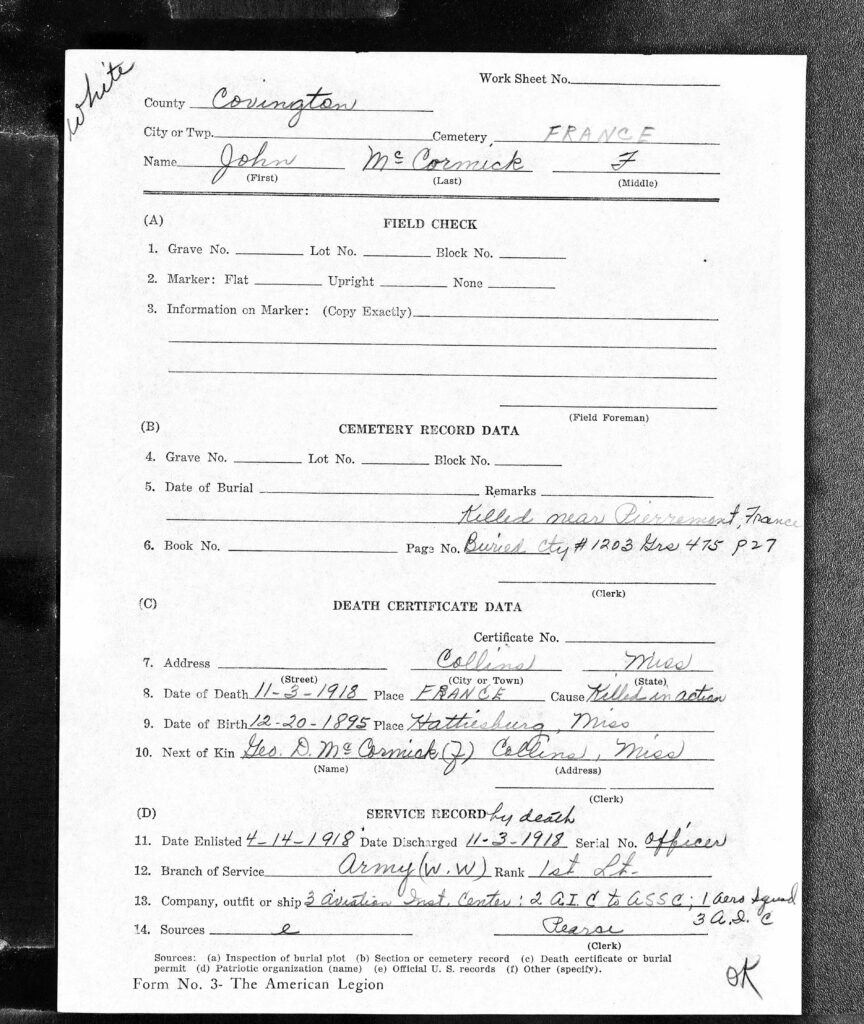 white
Work Sheet No.
County Covington
City or Twp. Cemetery FRANCE
Name John McCormick F
(First) (Last) (Middle)
(A) FIELD CHECK
1. Grave No. Lot No. Block No.
2. Marker: Flat Upright None
3. Information on Marker: (Copy Exactly)
(Field Foreman)
(B) CEMETERY RECORD DATA
4. Grave No. Lot No. Block No.
5. Date of Burial Remarks
Killed near Pierremont, France
6. Book No. Page No. Buried Cty #1203 Grs 475 P27
(Clerk)
(C) DEATH CERTIFICATE DATA
Certificate No.
7. Address Collins Miss
(Street) (City or Town) (State)
8. Date of Death 11-3-1918 Place FRANCE Cause Killed in action
9. Date of Birth 12-20-1895 Place Hattiesburg, Miss
10. Next of Kin Geo. D. McCormick (F) Collins, Miss
(Name) (Address)
(Clerk)
(D) SERVICE RECORD by death
11. Date Enlisted 4-14-1918 Date Discharged 11-3-1918 Serial No. officer
12. Branch of Service Army (W.W) Rank 1st Lt.
13. Company, outfit or ship 3 Aviation Inst. Center: 2 A.I.C to ASSC; 1 Aero Squad
3 A.I. C
14. Sources e Pearse
(Clerk)
Sources: (a) Inspection of burial plot (b) Section or cemetery record (c) Death certificate or burial
permit (d) Patriotic organization (name) (e) Official U. S. records (f) Other (specify).
Form No. 3- The American Legion
OK